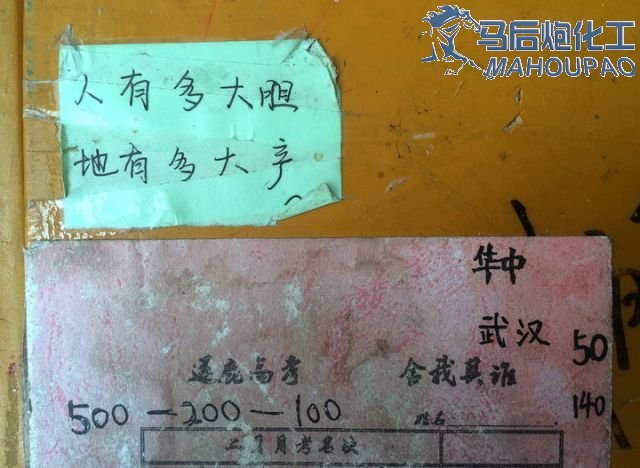 马后炮化工
MAHOUPAO
人有多大胆
地有多大产
华中
武汉
50
逐鹿高考 舍我其谁
500-200-100
姓名
140
二月月考名次